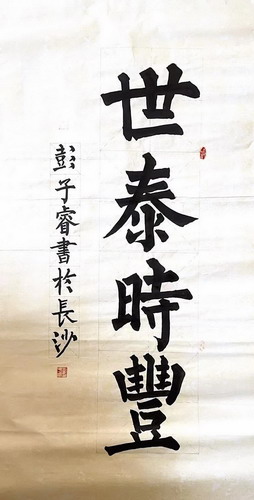 世泰時豐
彭子睿書於長沙